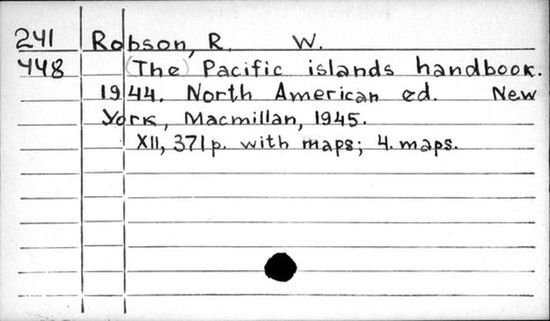 241 Robson, R. W.
448 (The) Pacific islands handbook.
1944. North American ed. New
York, Macmillan, 1945.
XII, 371p. with maps; 4. maps.